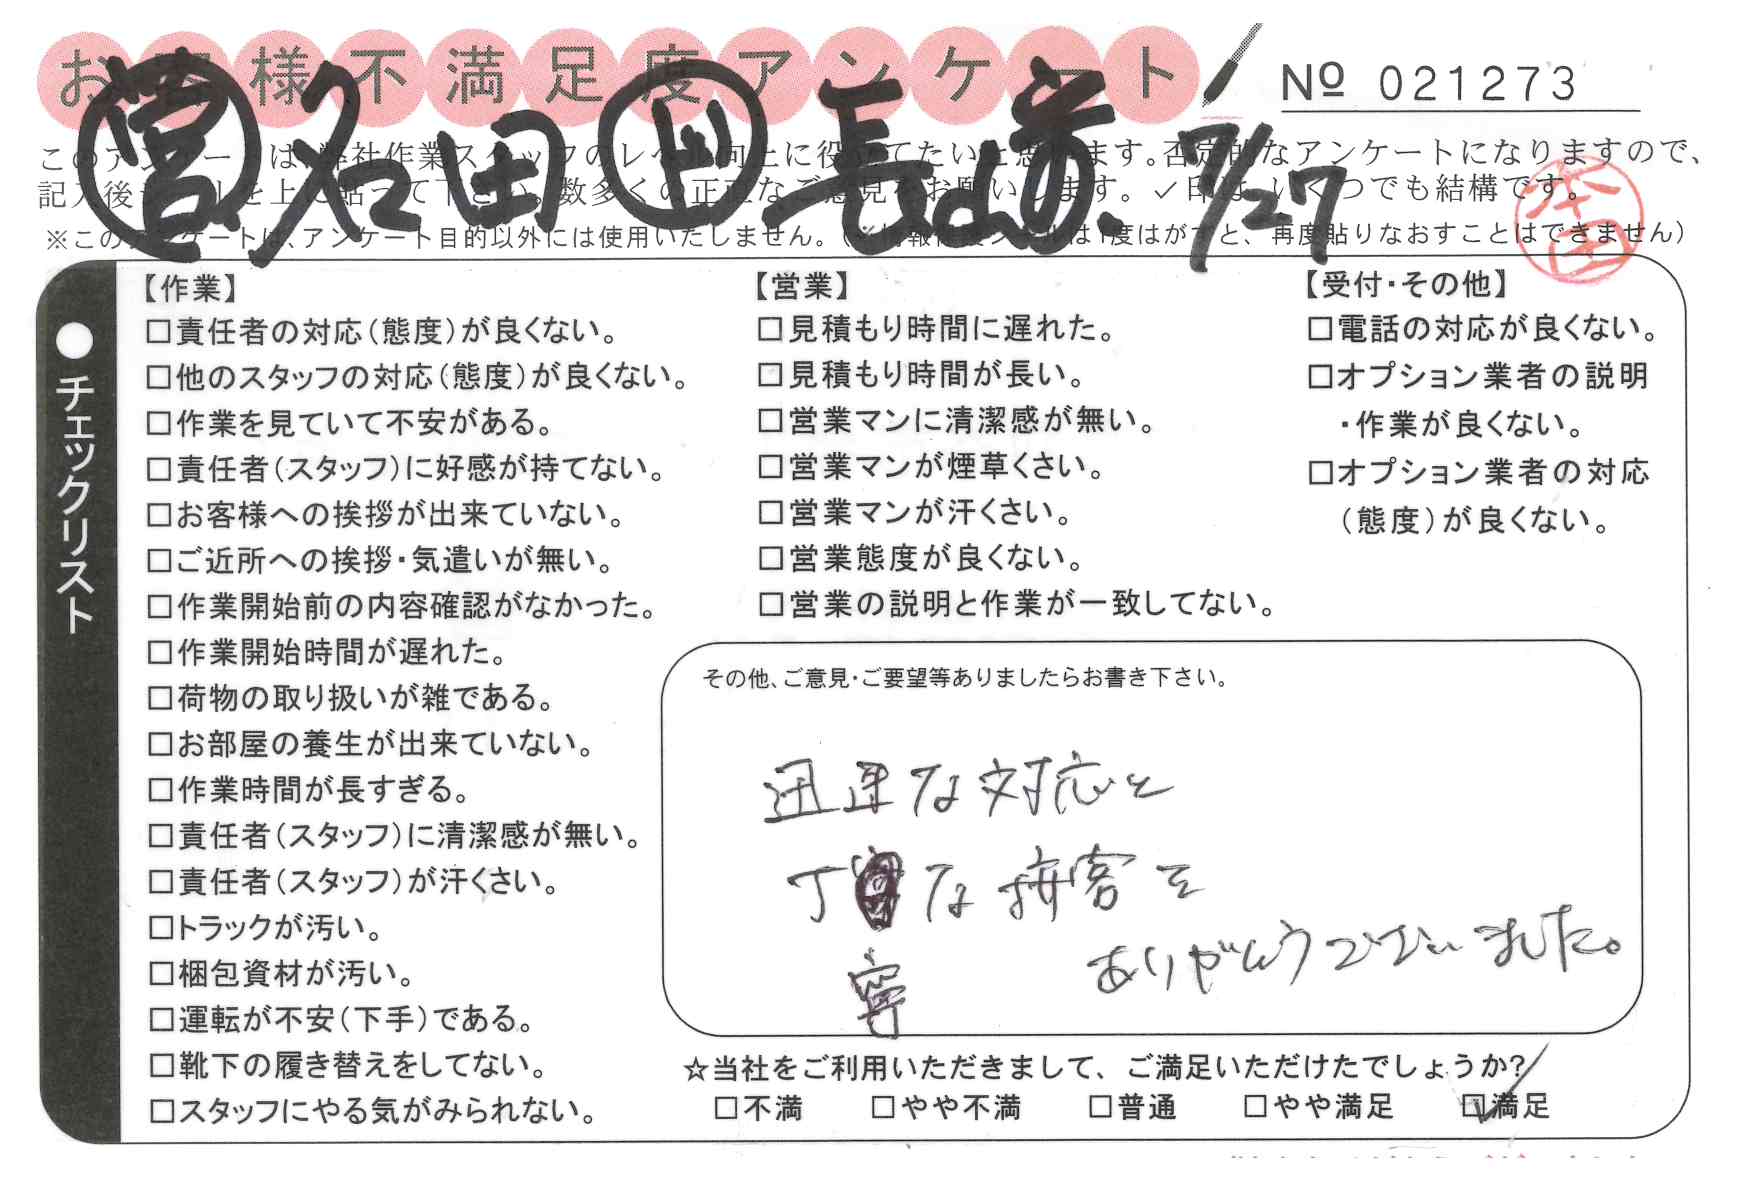 お客様不満足度アンケート
№ 021273
営 名田 上 長崎 7/27
このアンケートは、弊社作業スタッフのレベル向上に役立てたいと思います。否定的なアンケートになりますので、
記入後シールを上に貼って下さい。数多くの正直なご意見をお願いします。✓印は、いくつでも結構です。
※このアンケートは、アンケート目的以外には使用いたしません。(※情報保護シールは1度はがすと、再度貼りなおすことはできません)
●チェックリスト
【作業】
□責任者の対応(態度)が良くない。
□他のスタッフの対応(態度)が良くない。
□作業を見ていて不安がある。
□責任者(スタッフ)に好感が持てない。
□お客様への挨拶が出来ていない。
□ご近所への挨拶・気遣いが無い。
□作業開始前の内容確認がなかった。
□作業開始時間が遅れた。
□荷物の取り扱いが雑である。
□お部屋の養生が出来ていない。
□作業時間が長すぎる。
□責任者(スタッフ)に清潔感が無い。
□責任者(スタッフ)が汗くさい。
□トラックが汚い。
□梱包資材が汚い。
□運転が不安(下手)である。
□靴下の履き替えをしてない。
□スタッフにやる気がみられない。
【営業】
□見積もり時間に遅れた。
□見積もり時間が長い。
□営業マンに清潔感が無い。
□営業マンが煙草くさい。
□営業マンが汗くさい。
□営業態度が良くない。
□営業の説明と作業が一致してない。
【受付・その他】
□電話の対応が良くない。
□オプション業者の説明
・作業が良くない。
□オプション業者の対応
(態度)が良くない。
その他、ご意見・ご要望等ありましたらお書き下さい。
迅速な対応と
丁寧な接客を
ありがとうございました。
☆当社をご利用いただきまして、ご満足いただけたでしょうか?
□不満 □やや不満 □普通 □やや満足 ☑満足